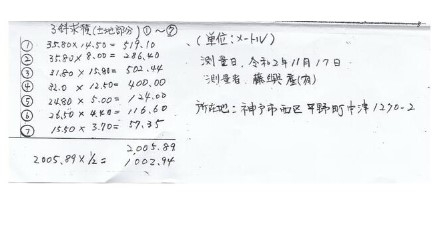 3斜求積(土地部分) ①〜⑦
① 35.80 × 14.50 = 519.10
② 35.80 × 8.00 = 286.40
③ 31.80 × 15.80 = 502.44
④ 32.0 × 12.50 = 400.00
⑤ 24.80 × 5.00 = 124.00
⑥ 26.50 × 4.40 = 116.60
⑦ 15.50 × 3.70 = 57.35
2005.89
2005.89 × 1/2 = 1002.94
(単位:メートル)
測量日、令和2年11月17日
測量者、藤興産(有)
所在地:神戸市西区平野町中津1270-2